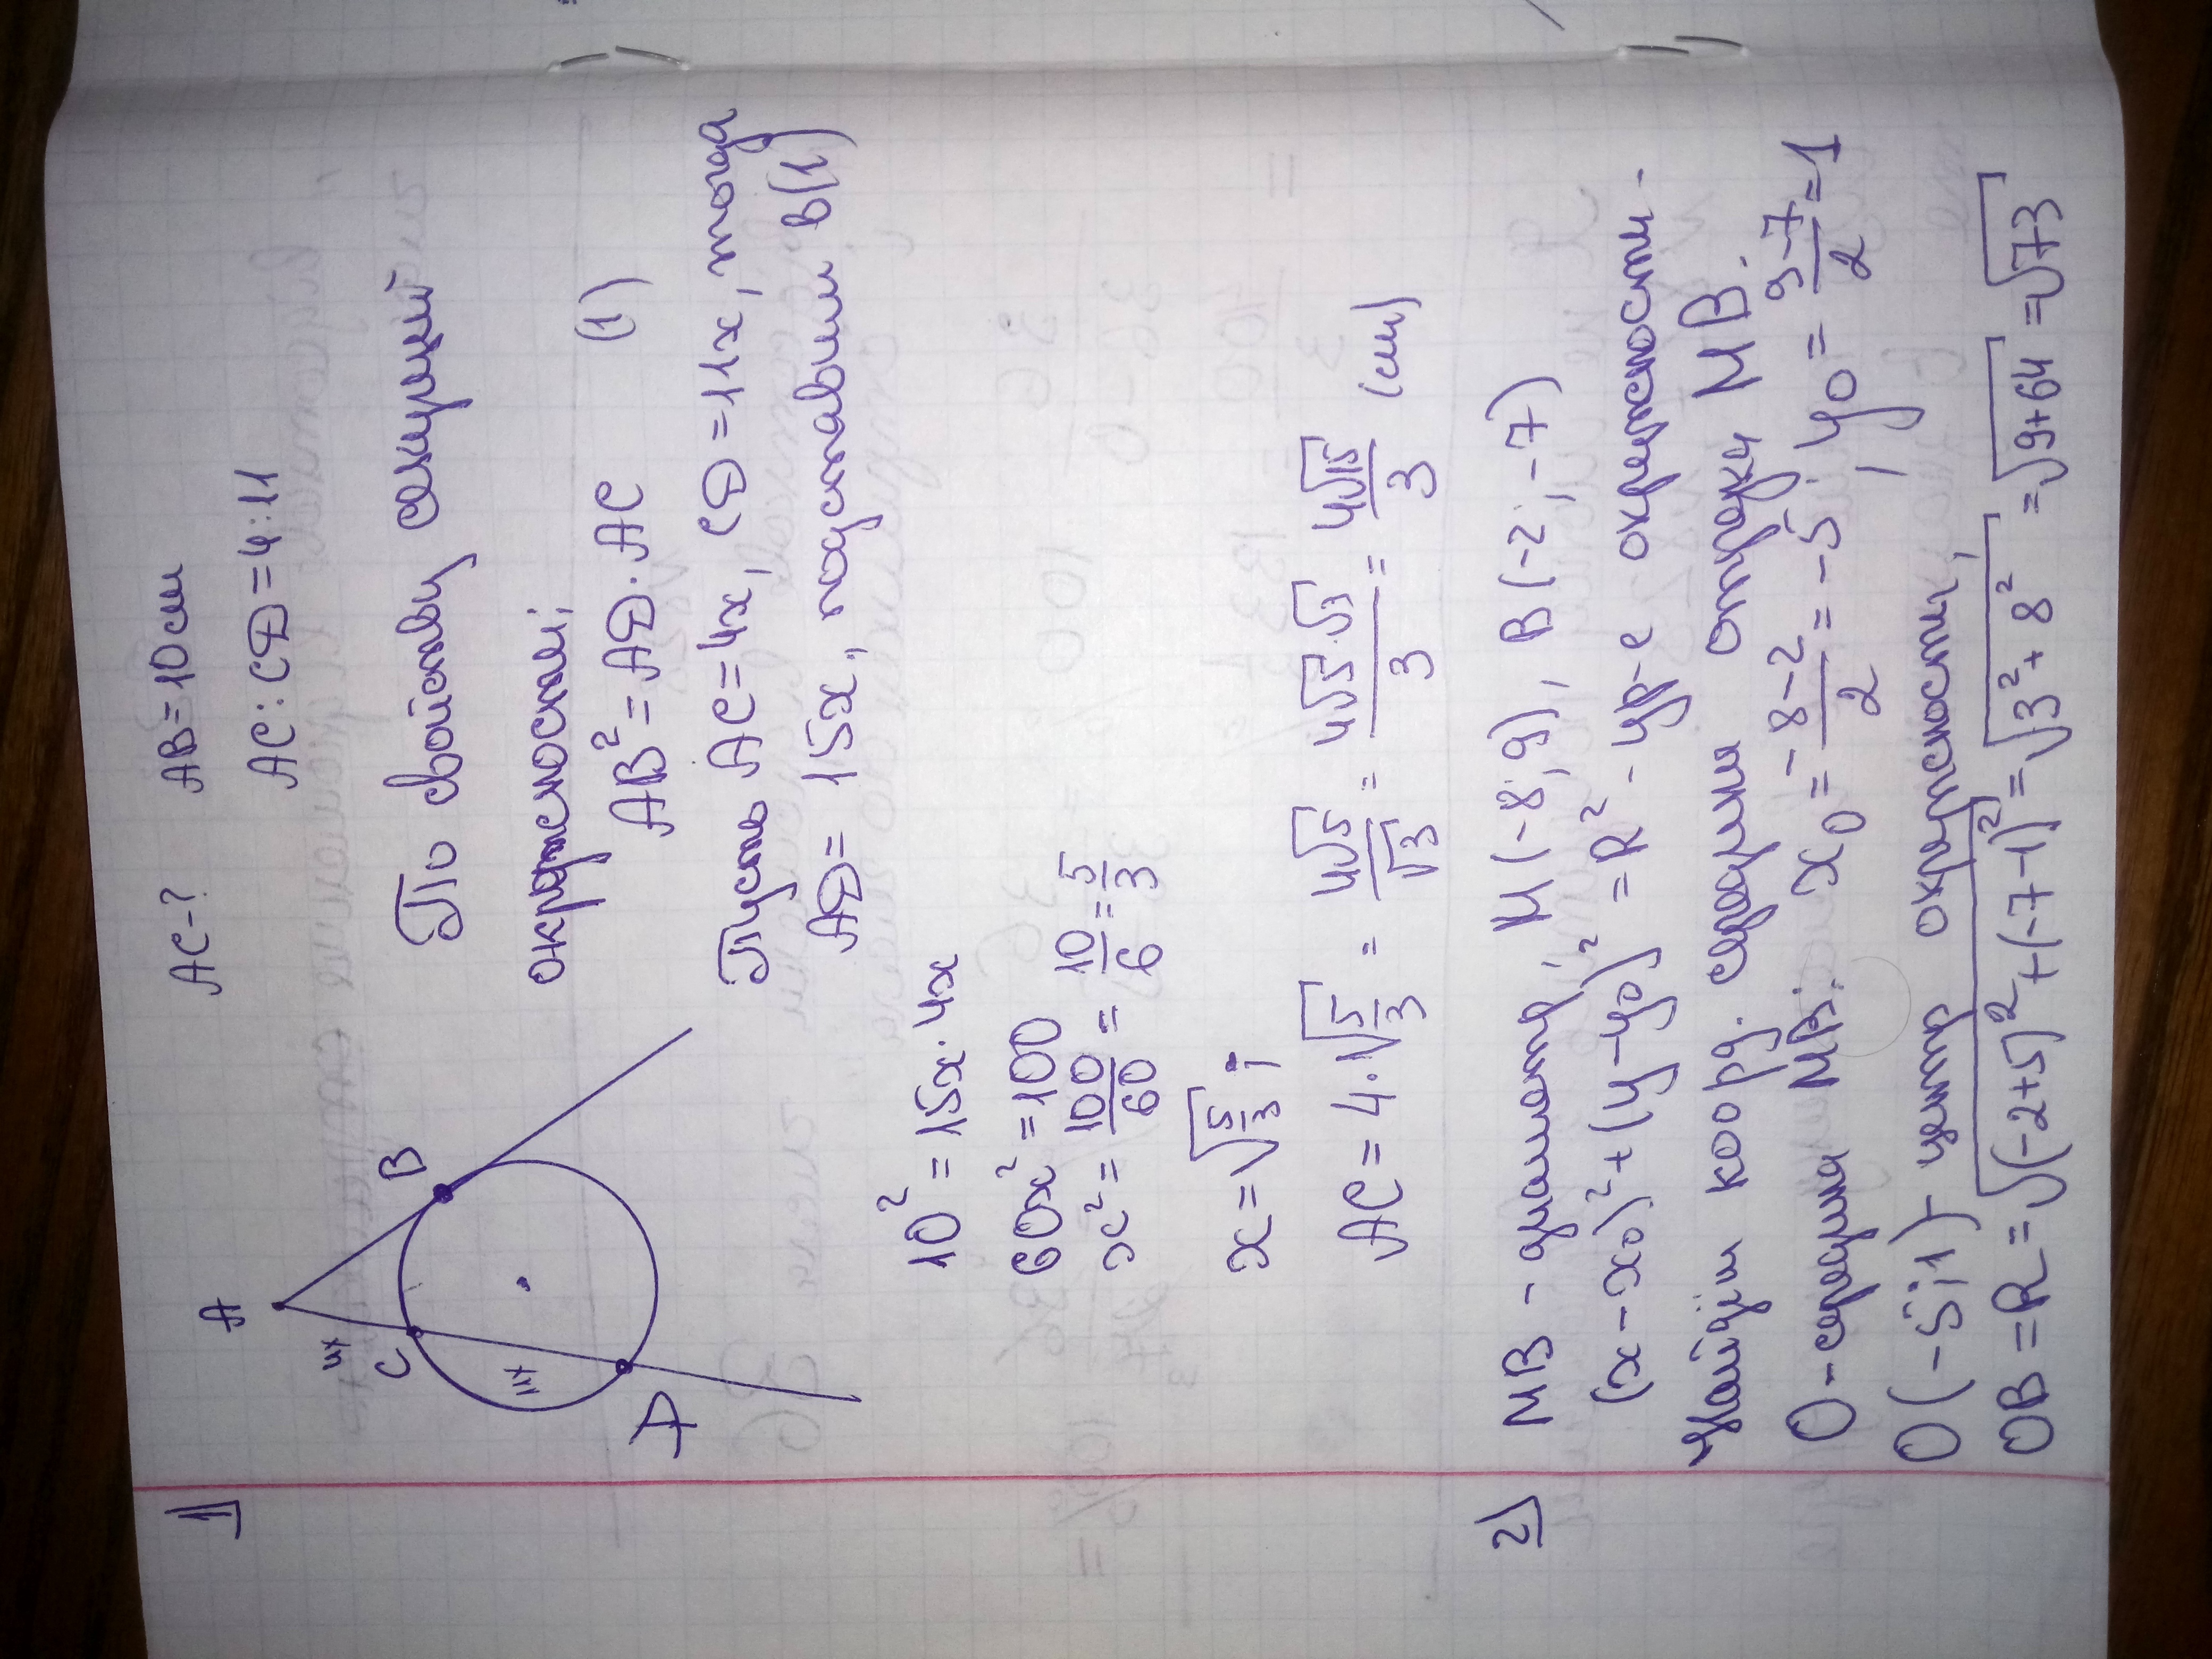 1
AC-? AB=10см
AC:CD=4:11
A
4x
C
B
11x
D
По свойству секущей
окружности:
AB²=AD·AC (1)
Пусть AC=4x, CD=11x, тогда
AD=15x, подставим в(1)
10²=15x·4x
60x²=100
x²=100/60=10/6=5/3
x=√5/3;
AC=4·√5/3=4√5/√3=4√5·√3/3=4√15/3 (см)
2)
MB-диаметр, M(-8;9), B(-2;-7)
(x-x₀)²+(y-y₀)²=R²-ур-е окружности-
Найдём коорд. середины отрезка MB.
O-середина MB: x₀=-8-2/2=-5; y₀=9-7/2=1
O(-5;1)-центр окружности,
OB=R=√(-2+5)²+(-7-1)²=√3²+8²=√9+64=√73